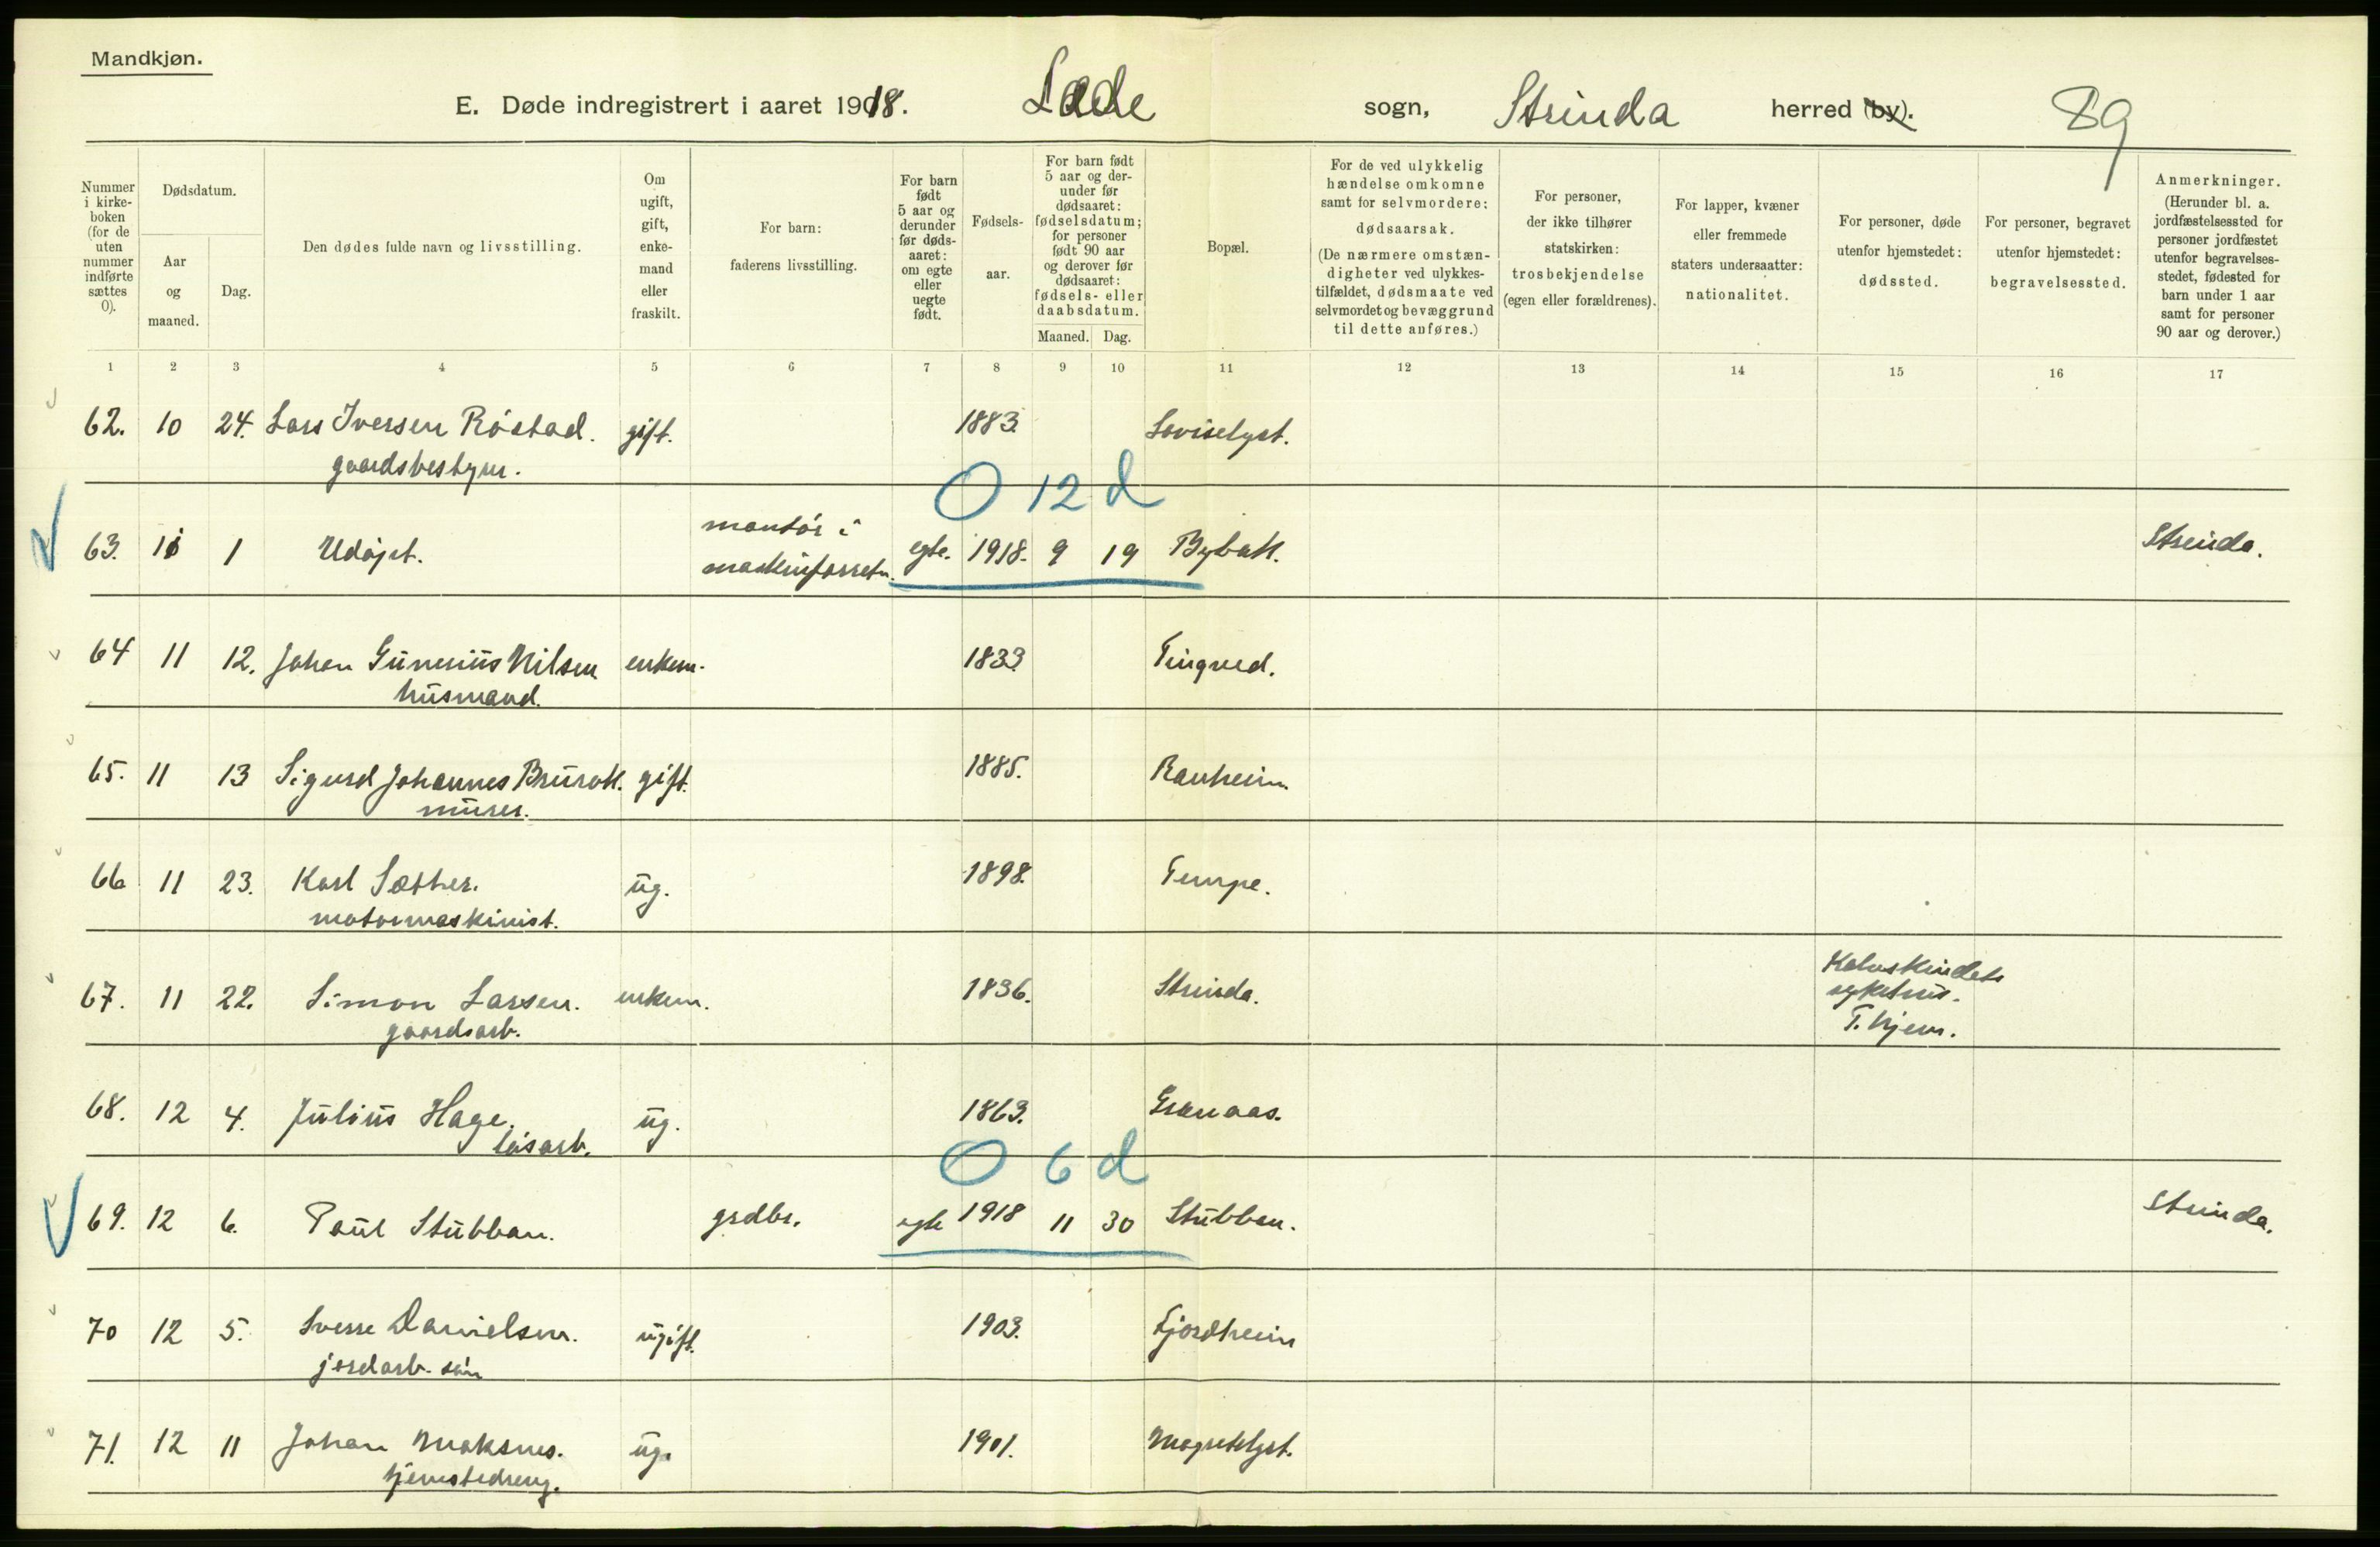 Mandkjøn.
E. Døde indregistrert i aaret 1918. Lade sogn, Strinda herred (by). 89
Nummer i kirkeboken (for de uten nummer indførte sættes 0).
Dødsdatum.
Aar og maaned.
Dag.
Den dødes fulde navn og livsstilling.
Om ugift, gift, enkemand eller fraskilt.
For barn: faderens livsstilling.
For barn født 5 aar og derunder før dødsaaret: om egte eller uegte født.
Fødselsaar.
For barn født 5 aar og derunder før dødsaaret: fødselsdatum; for personer født 90 aar og derover før dødsaaret: fødsels- eller daabsdatum.
Maaned. Dag.
Bopæl.
For de ved ulykkelig hændelse omkomne samt for selvmordere: dødsaarsak. (De nærmere omstændigheter ved ulykkestilfældet, dødsmaate ved selvmordet og bevæggrund til dette anføres.)
For personer, der ikke tilhører statskirken: trosbekjendelse (egen eller forældrenes).
For lapper, kvæner eller fremmede staters undersaatter: nationalitet.
For personer, døde utenfor hjemstedet: dødssted.
For personer, begravet utenfor hjemstedet: begravelsessted.
Anmerkninger. (Herunder bl. a. jordfæstelsessted for personer jordfæstet utenfor begravelsesstedet, fødested for barn under 1 aar samt for personer 90 aar og derover.)
1 2 3 4 5 6 7 8 9 10 11 12 13 14 15 16 17
62. 10 24. Lars Iversen Röstad. gift. 1883. Loviselyst.
gaardsbestyrer.
0 12 d
63. 11 1 Udöpt. montör i maskinforretn. egte. 1918. 9 19 Strinda.
64 11 12. Johan Gunerius Nilsen enkem. 1833. Tingved.
husmand.
65. 11 13 Sigurd Johannes gift. 1885. Ranheim
murer.
66 11 23. Karl Sæther. ug. 1898. Tempe.
motormaskinist.
67. 11 22. Simon Larsen. enkem. 1836. Strinda. Kalvskindets sykehus. T.hjem.
gaardsarb.
68. 12 4. Julius Hage. ug. 1863. Granaas.
løsarb.
0 6 d
69. 12 6. Paul Stubban. grdbr. egte 1918 11 30 Stubban. Strinda.
70 12 5. Sverre Danielsen. ugift. 1903. Fjordheim
jordarb. sön
71. 12 11 Johan Moksnes. ug. 1901. Magretelyst.
tjenestedreng.